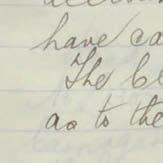 have ca
The Cl
as to the